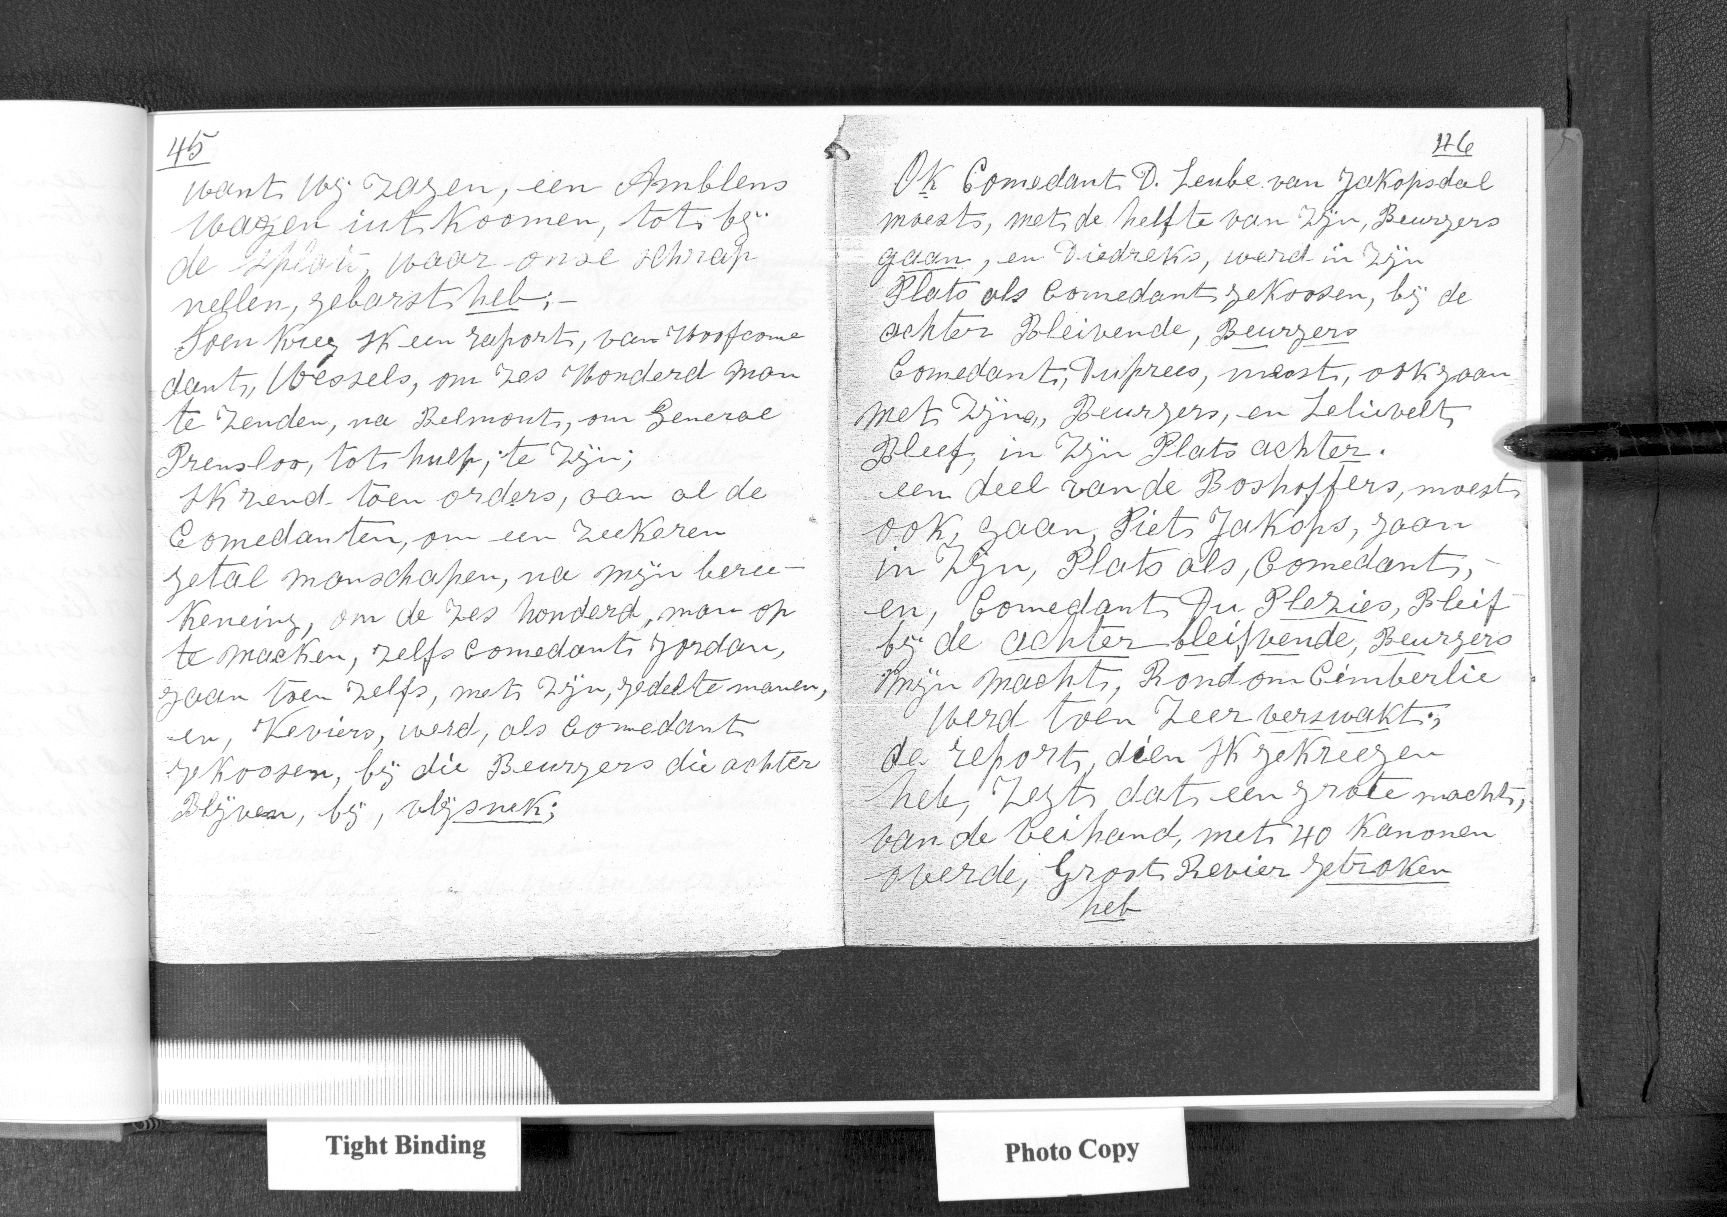 45
want wij zagen, een Amblens
wagen iut koomen, tot bij
de splaü, waar onse schrap
nellen, gebarst heb;-
Toen kreg Ik een raport, van Hoofcome
dant, Wessels, om zes Honderd man
te zenden, na Belmont, om Generae
Prensloo, tot hulp, te zijn;
Ik zend toen orders, aan al de
Comedanten, om een zeekeren
getal manschapen, na mijn beree-
keneing, om de zes honderd, man op
te macken, zelfs Comedant Jordan,
gaan toen zelfs, met zijn, gedelte manen,
en, Keviers, werd, als Comedant
gekoosen, bij die Beurgers die achter
Blijven, bij, olijsnek;
46
Ok Comedant D. Leube van Jakopsdal
moest, met de helfte van zijn, Beurgers
gaan, en Diedreks, werd in zijn
Plats als Comedant gekoosen, bij de
achter Bleivende, Beurgers
Comedant, Duprees, moest, ook gaan
met zijne, Beurgers, en Lelievelt
Bleef, in zijn Plats achter.
een deel van de Boshoffers, moest
ook, gaan, Piet Jakops, gaan
in zijn, Plats als, Comedant,-
en, Comedant Du Plezies, Bleif
bij de achter bleifvende, Beurgers
Mijn macht, Rondom Cimberlie
werd toen zeer verswakt;
de report, dien Ik gekreegen
heb, zegt dat een grote macht,
van de Veihand, met 40 Kanonen
over de, Groot Revier getroken
heb
Tight Binding
Photo Copy